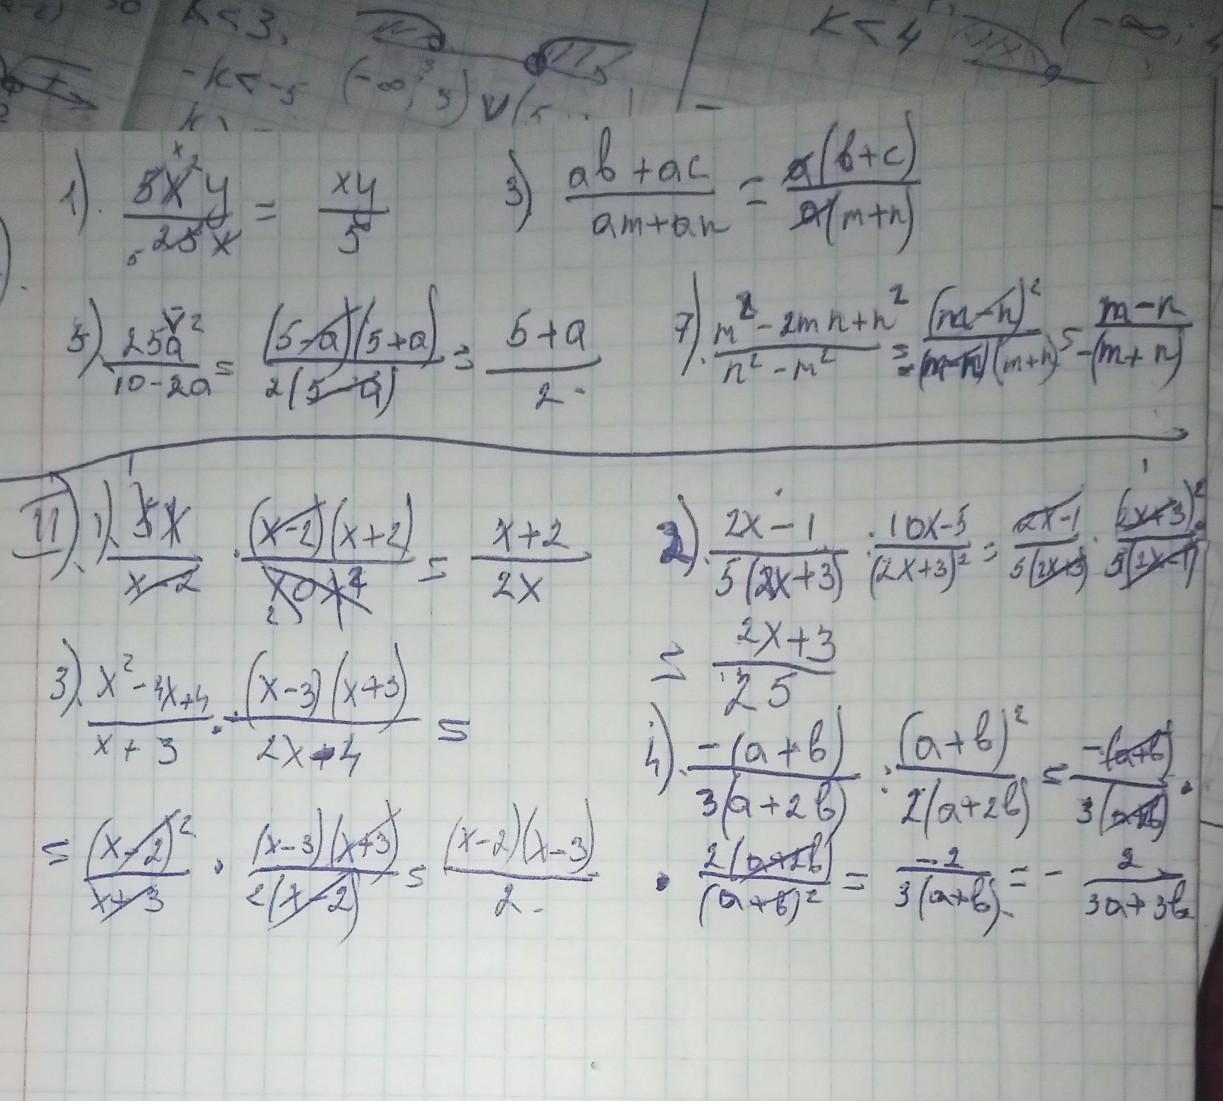 K < 3,
K < 4
(-∞;
-K < -5
(-∞; 3) ∨ (5
1). 5x²y / 25x = xy / 5
3) ab + ac / am + an = a(b+c) / a(m+n)
5) 25-a² / 10-2a = (5-a)(5+a) / 2(5-a) = 5+a / 2
7). m² - 2mn + n² / n² - m² = (m-n)² / (m-n)(m+n) = m-n / -(m+n)
II). 1). 5x / x-2 · (x-2)(x+2) / 10x² = x+2 / 2x
2). 2x-1 / 5(2x+3) : 10x-5 / (2x+3)² = 2x-1 / 5(2x+3) · (2x+3)² / 5(2x-1)
= 2x+3 / 25
3). x²-4x+4 / x+3 · (x-3)(x+3) / 2x-4 =
= (x-2)² / x+3 · (x-3)(x+3) / 2(x-2) = (x-2)(x-3) / 2
4). -(a+b) / 3(a+2b) : (a+b)² / 2(a+2b) = -(a+b) / 3(a+2b) ·
· 2(a+2b) / (a+b)² = -2 / 3(a+b) = - 2 / 3a+3b